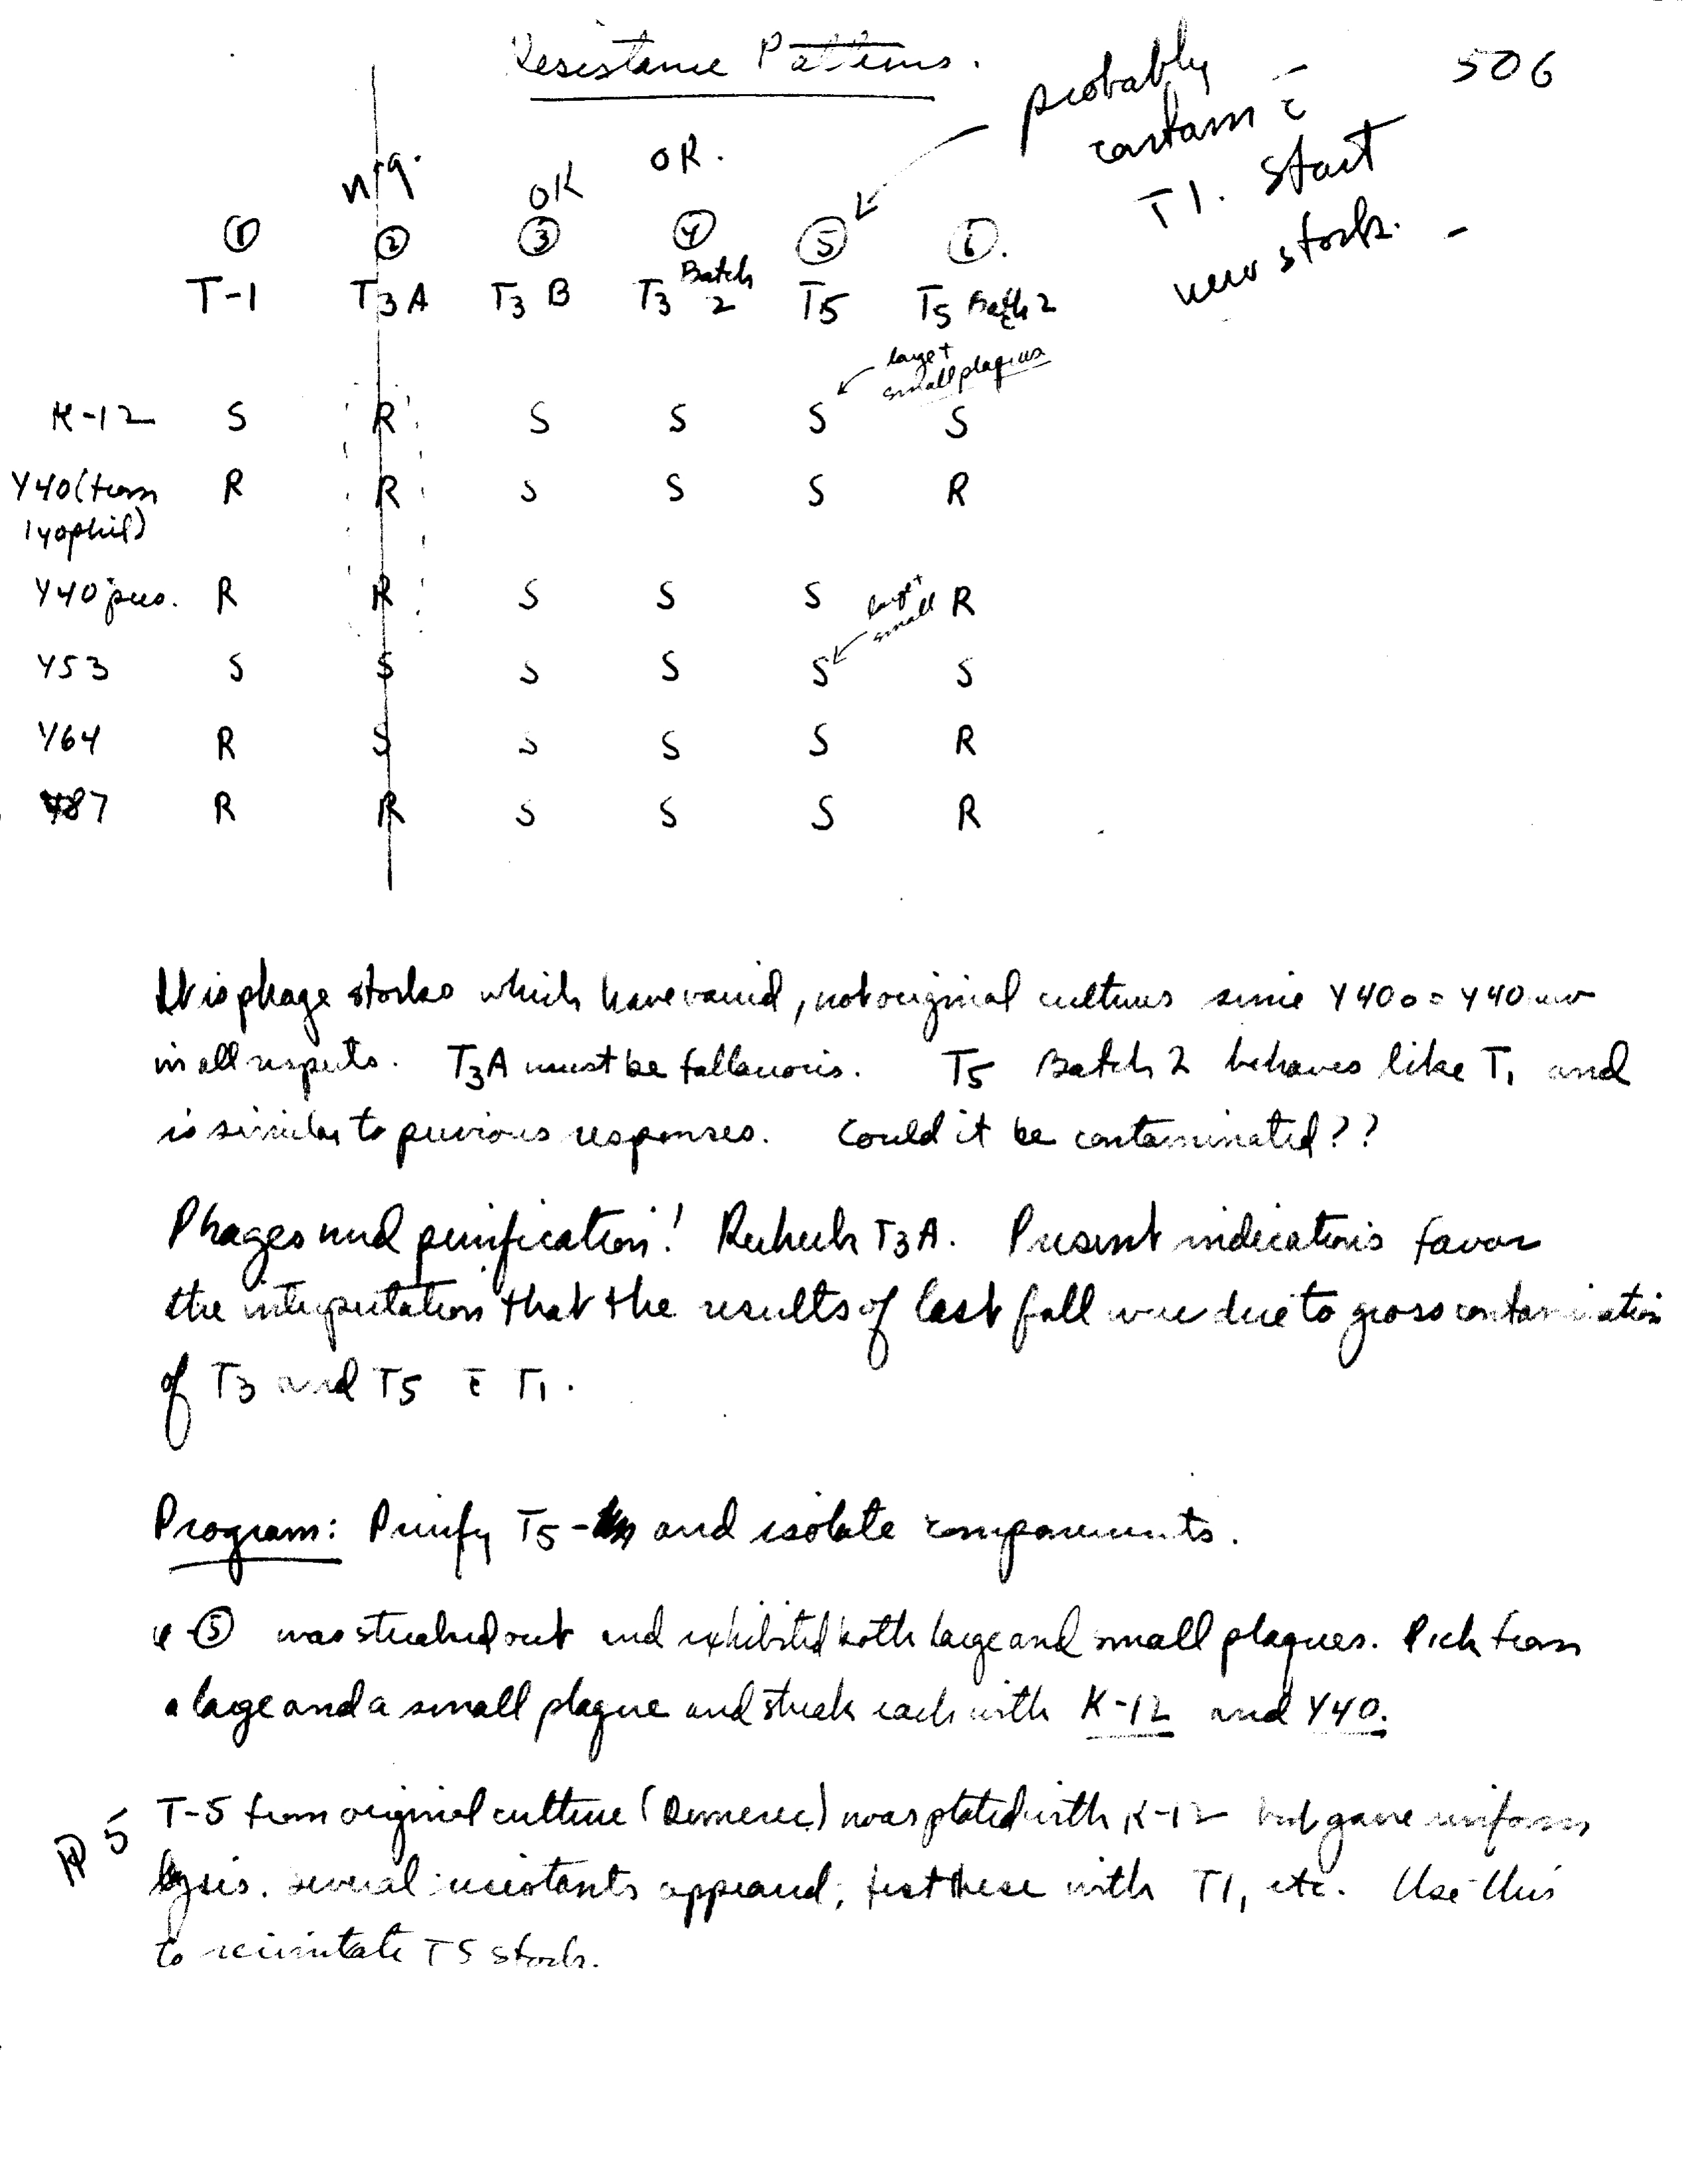 Resistance Patterns. 506
probably
contam c̄
T1. Start
new stock.
n.g. OK OK.
① ② ③ ④ ⑤ ⑥.
T-1 T3A T3 B T3 Batch 2 T5 T5 Batch 2
large +
small plaques
K-12 S R S S S S
Y40 (from R R S S S R
lyophil)
Y40 prev. R R S S S R
large +
small
Y53 S S S S S S
Y64 R S S S S R
Y87 R R S S S R
It is phage stocks which have varied, not original cultures since Y40o = Y40 new
in all respects. T3A must be fallacious. T5 Batch 2 behaves like T1 and
is similar to previous responses. Could it be contaminated??
Phages need purification! Recheck T3A. Present indications favor
the interpretation that the results of last fall were due to gross contamination
of T3 and T5 c̄ T1.
Program: Purify T5- and isolate components.
⑤ was streaked out and exhibited both large and small plaques. Pick from
a large and a small plaque and streak each with K-12 and Y40.
5 T-5 from original culture (Demerec) was plated with K-12 but gave uniform
lysis. Several resistants appeared; test these with T1, etc. Use this
to T5 stock.